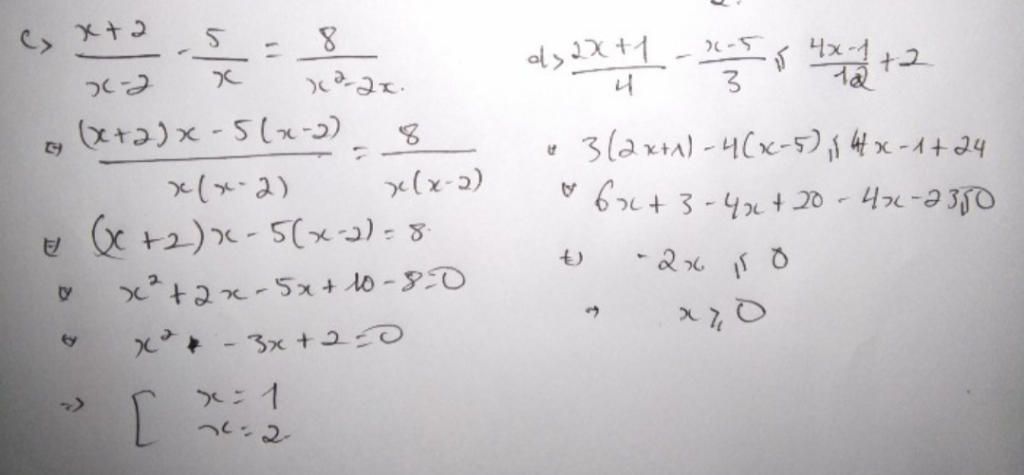 c> (x+2)/(x-2) - 5/x = 8/(x²-2x).
⇔ ((x+2)x - 5(x-2))/(x(x-2)) = 8/(x(x-2))
⇔ (x+2)x - 5(x-2) = 8.
⇔ x² + 2x - 5x + 10 - 8 = 0
⇔ x² - 3x + 2 = 0
=> [ x = 1
x = 2.
d> (2x+1)/4 - (x-5)/3 ≤ (4x-1)/12 + 2
⇔ 3(2x+1) - 4(x-5) ≤ 4x - 1 + 24
⇔ 6x + 3 - 4x + 20 - 4x - 23 ≤ 0
⇔ -2x ≤ 0
→ x ≥ 0